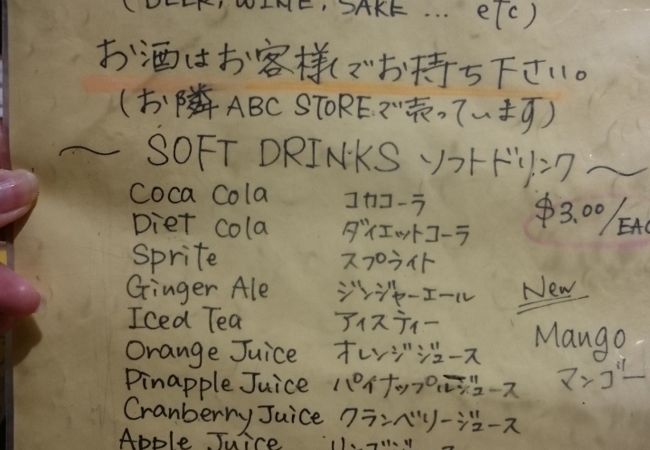 (BEER, WINE, SAKE ... etc)
お酒はお客様でお持ち下さい。
(お隣 ABC STOREで売っています)
〜 SOFT DRINKS ソフトドリンク 〜
Coca Cola コカコーラ
$3.00/EAC
Diet Cola ダイエットコーラ
Sprite スプライト
Ginger Ale ジンジャーエール
New
Iced Tea アイスティー
Mango
Orange Juice オレンジジュース
マンゴー
Pinapple Juice パイナップルジュース
Cranberry Juice クランベリージュース
Apple Juice リンゴジュース